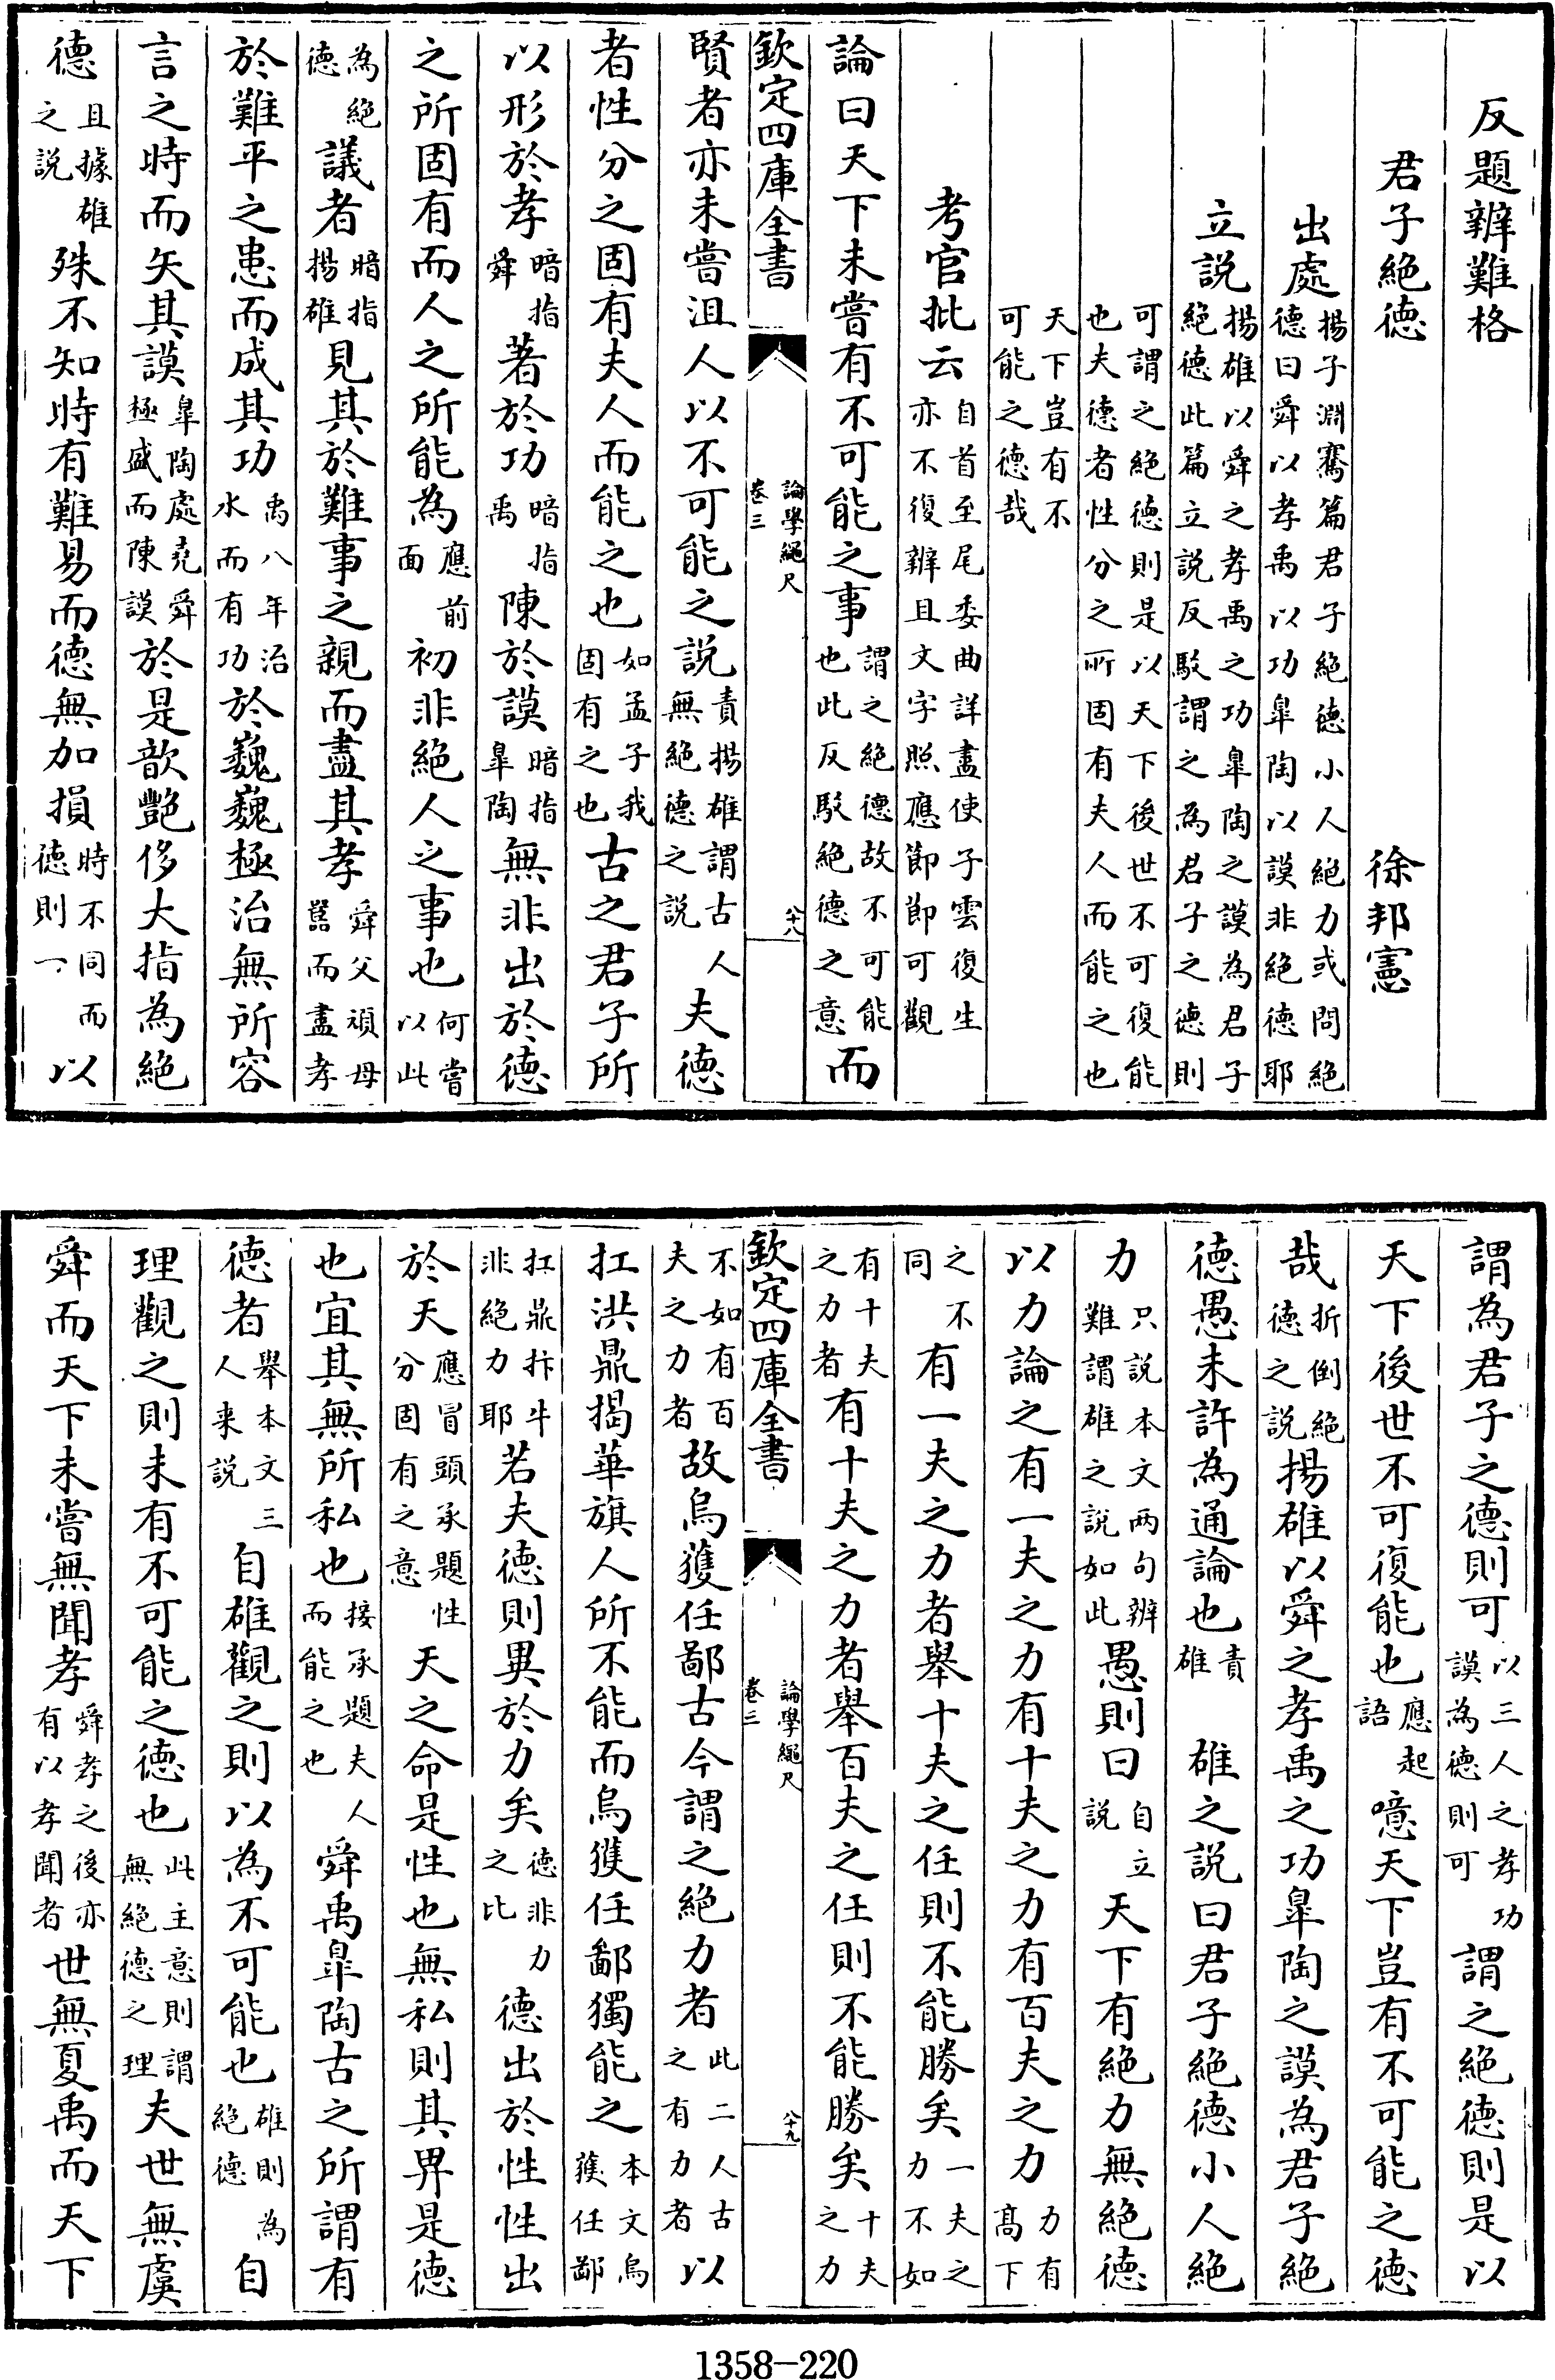 反題辨難格
君子絶德　徐邦憲
出處揚子淵騫篇君子絶德小人絶力或問絶
德曰舜以孝禹以功臯陶以謨非絶德耶
立説揚雄以舜之孝禹之功臯陶之謨為君子
絶德此篇立説反駁謂之為君子之德則
可謂之絶德則是以天下後世不可復能
也夫德者性分之所固有夫人而能之也
天下豈有不
可能之德哉
考官批云自首至尾委曲詳盡使子雲復生
亦不復辨且文字照應節節可觀
論曰天下未嘗有不可能之事謂之絶德故不可能
也此反駁絶德之意而
欽定四庫全書
論學繩尺
卷三
八十八
賢者亦未嘗沮人以不可能之説責揚雄謂古人
無絶德之説夫德
者性分之固有夫人而能之也如孟子我
固有之也古之君子所
以形於孝暗指
舜著於功暗指
禹陳於謨暗指
臯陶無非出於德
之所固有而人之所能為應前
面初非絶人之事也何嘗
以此
為絶
德議者暗指
揚雄見其於難事之親而盡其孝舜父頑母
嚚而盡孝
於難平之患而成其功禹八年治
水而有功於巍巍極治無所容
言之時而矢其謨臯陶處堯舜
極盛而陳謨於是歆艷侈大指為絶
德且據雄
之説殊不知時有難易而德無加損時不同而
德則一以
謂為君子之德則可以三人之孝功
謨為德則可謂之絶德則是以
天下後世不可復能也應起
語噫天下豈有不可能之德
哉折倒絶
德之説揚雄以舜之孝禹之功臯陶之謨為君子絶
德愚未許為通論也責
雄雄之説曰君子絶德小人絶
力只説本文兩句辨
難謂雄之説如此愚則曰自立
説天下有絶力無絶德
以力論之有一夫之力有十夫之力有百夫之力力有
高下
之不
同有一夫之力者舉十夫之任則不能勝矣一夫之
力不如
有十夫
之力者有十夫之力者舉百夫之任則不能勝矣十夫
之力
欽定四庫全書
論學繩尺
卷三
八十九
不如有百
夫之力者故烏獲任鄙古今謂之絶力者此二人古
之有力者以
扛洪鼎揭華旗人所不能而烏獲任鄙獨能之本文烏
獲任鄙
扛鼎抃牛
非絶力耶若夫德則異於力矣德非力
之比德出於性性出
於天應冒頭承題性
分固有之意天之命是性也無私則其畀是德
也宜其無所私也接承題夫人
而能之也舜禹臯陶古之所謂有
德者舉本文三
人来説自雄觀之則以為不可能也雄則為
絶德自
理觀之則未有不可能之德也此主意則謂
無絶德之理夫世無虞
舜而天下未嘗無聞孝舜孝之後亦
有以孝聞者世無夏禹而天下
1358-220